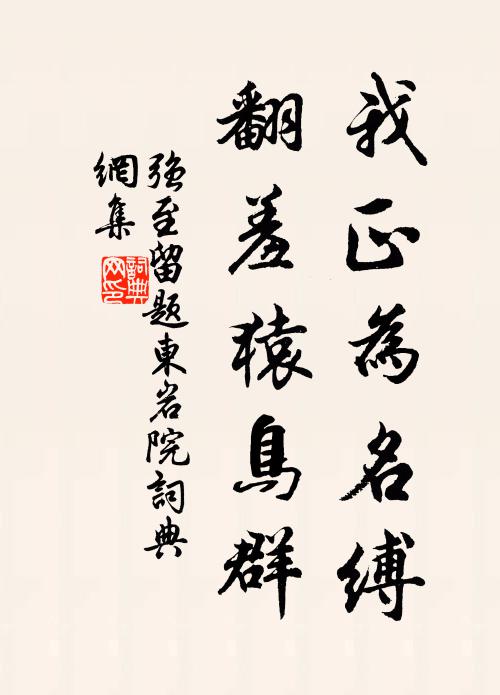 我正為名縛
翻羞猿鳥群
強至留題東岩院詞典
網集
詞典
網印